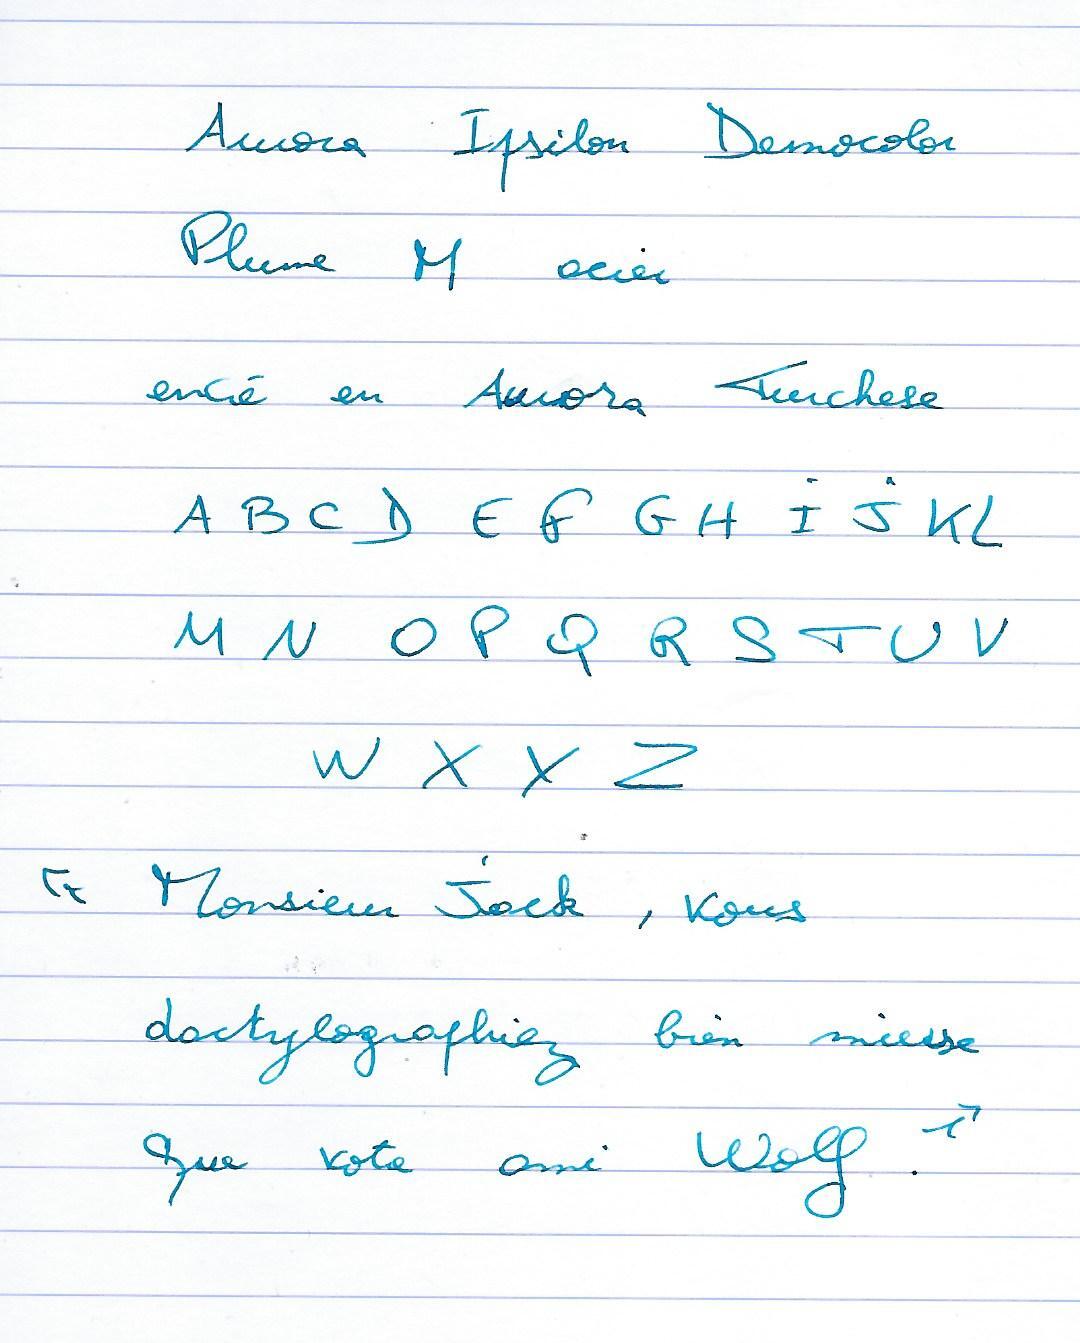 Aurora Ipsilon Democolor
Plume M acier
encré en Aurora Turchese
A B C D E F G H I J K L
M N O P Q R S T U V
W X Y Z
" Monsieur Jack, vous
dactylographiez bien mieux
que votre ami Wolf. "